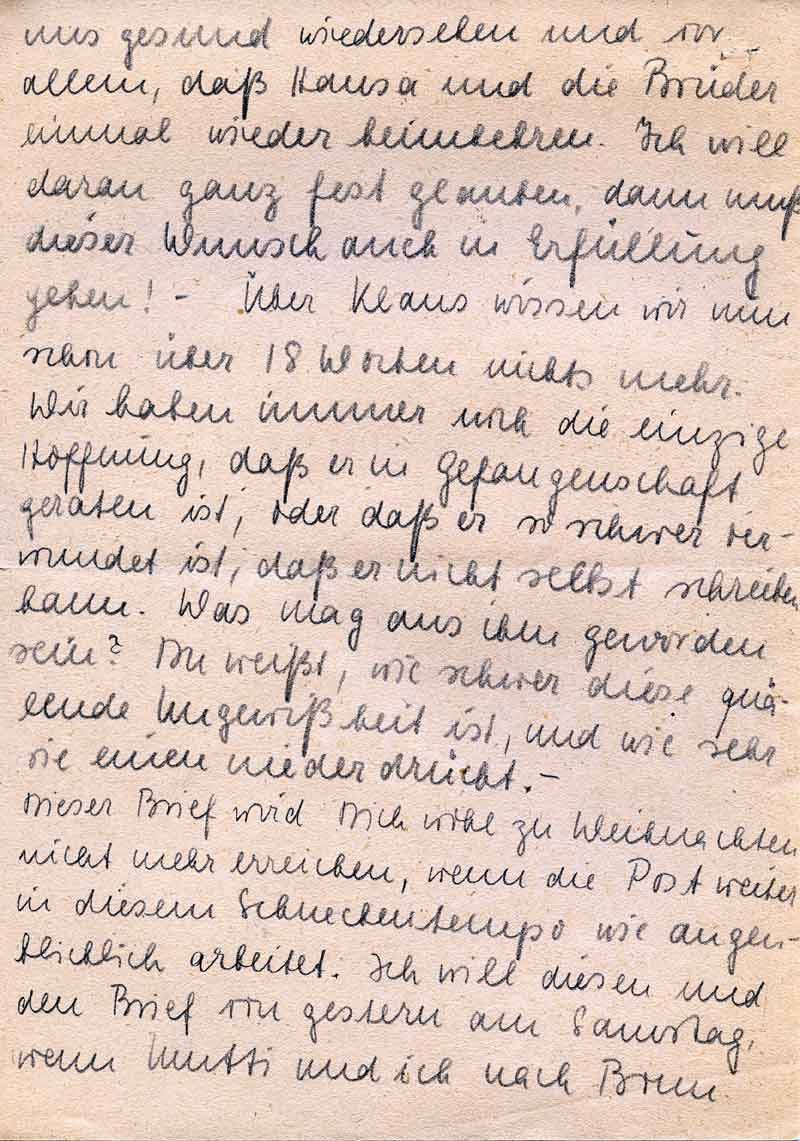 uns gesund wiedersehen und vor
allem, daß Hansa und die Brüder
einmal wieder heimkehren. Ich will
daran ganz fest glauben, dann muß
dieser Wunsch auch in Erfüllung
gehen! - Über Klaus wissen wir nun
schon über 18 Wochen nichts mehr.
Wir haben immer noch die einzige
Hoffnung, daß er in Gefangenschaft
geraten ist, oder daß er so schwer ver-
wundet ist, daß er nicht selbst schreiben
kann. Was mag aus ihm geworden
sein? Du weißt, wie schwer diese quä-
lende Ungewißheit ist, und wie sehr
sie einen niederdrückt. -
Dieser Brief wird Dich wohl zu Weihnachten
nicht mehr erreichen, wenn die Post weiter
in diesem Schneckentempo wie augen-
blicklich arbeitet. Ich will diesen und
den Brief von gestern am Samstag,
wenn Mutti und ich nach Bonn